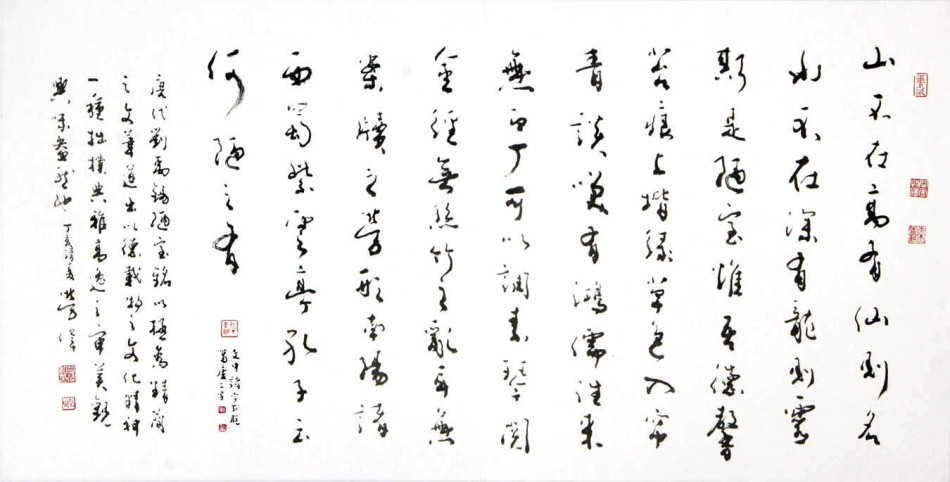 山不在高有仙則名
水不在深有龍則靈
斯是陋室惟吾德馨
苔痕上堦綠草色入帘
青談笑有鴻儒往來
無白丁可以調素琴閱
金經無絲竹之亂耳無
案牘之勞形南陽諸
西蜀紫雲亭孔子云
何陋之有
文中諸字下脫
葛廬二字
唐代劉禹錫陋室銘以極為精簡
之文筆道出以德載物之文化精神
一種拙樸典雅高逸之審美觀
興味盎然也 丁亥